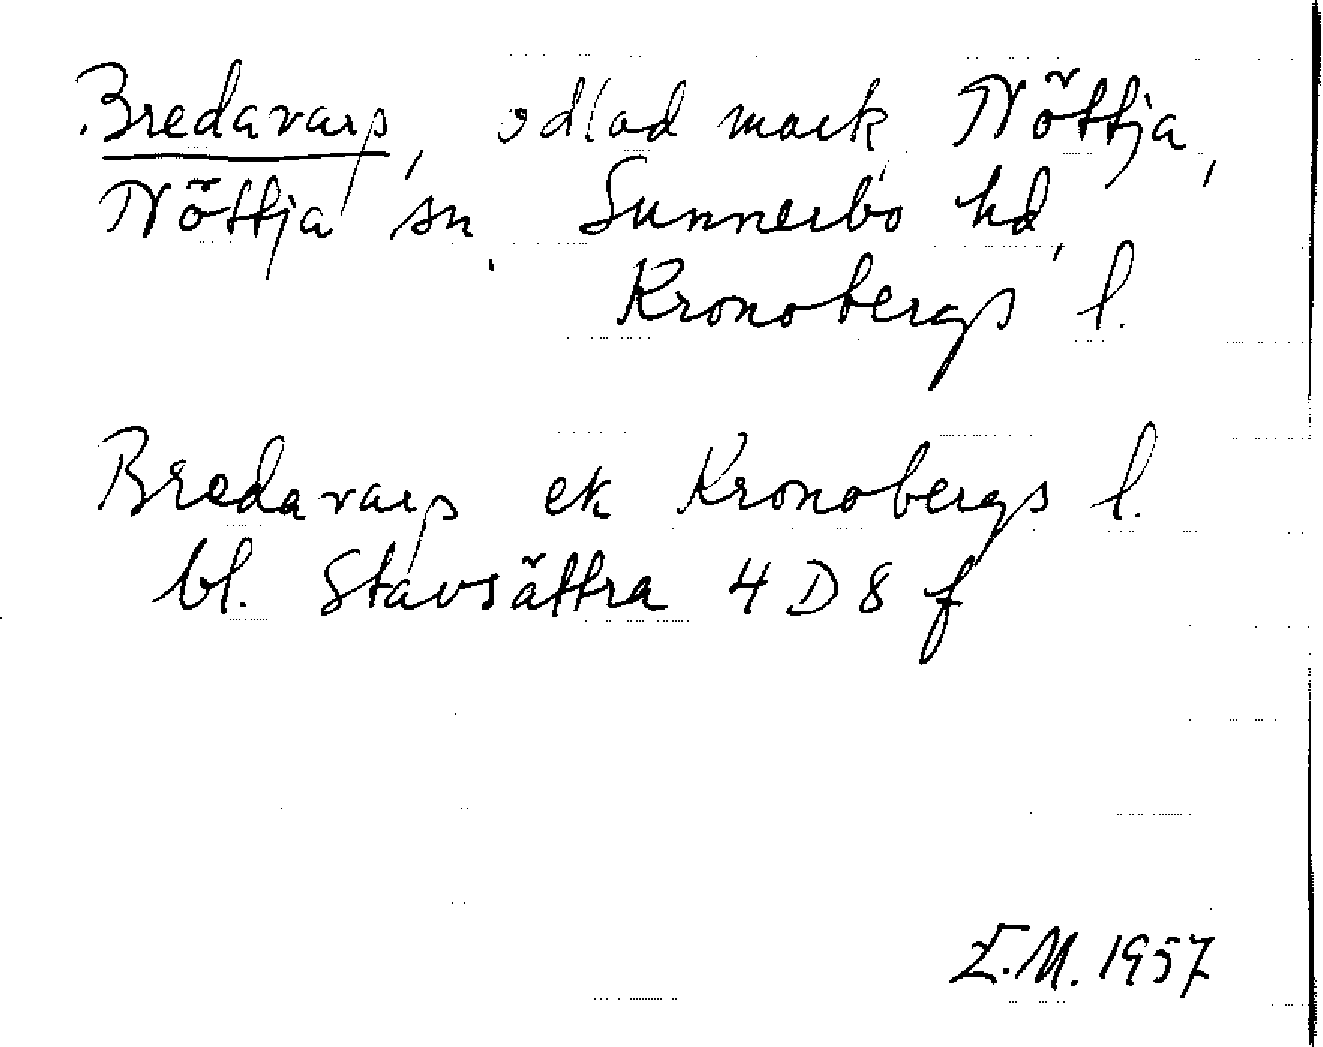 Bredavarp, odlad mark Nöttja,
Nöttja sn, Sunnerbo hd,
Kronobergs l.
Bredavarp ek Kronobergs l.
bl. Stavsättra 4 D 8 f
E.M. 1957